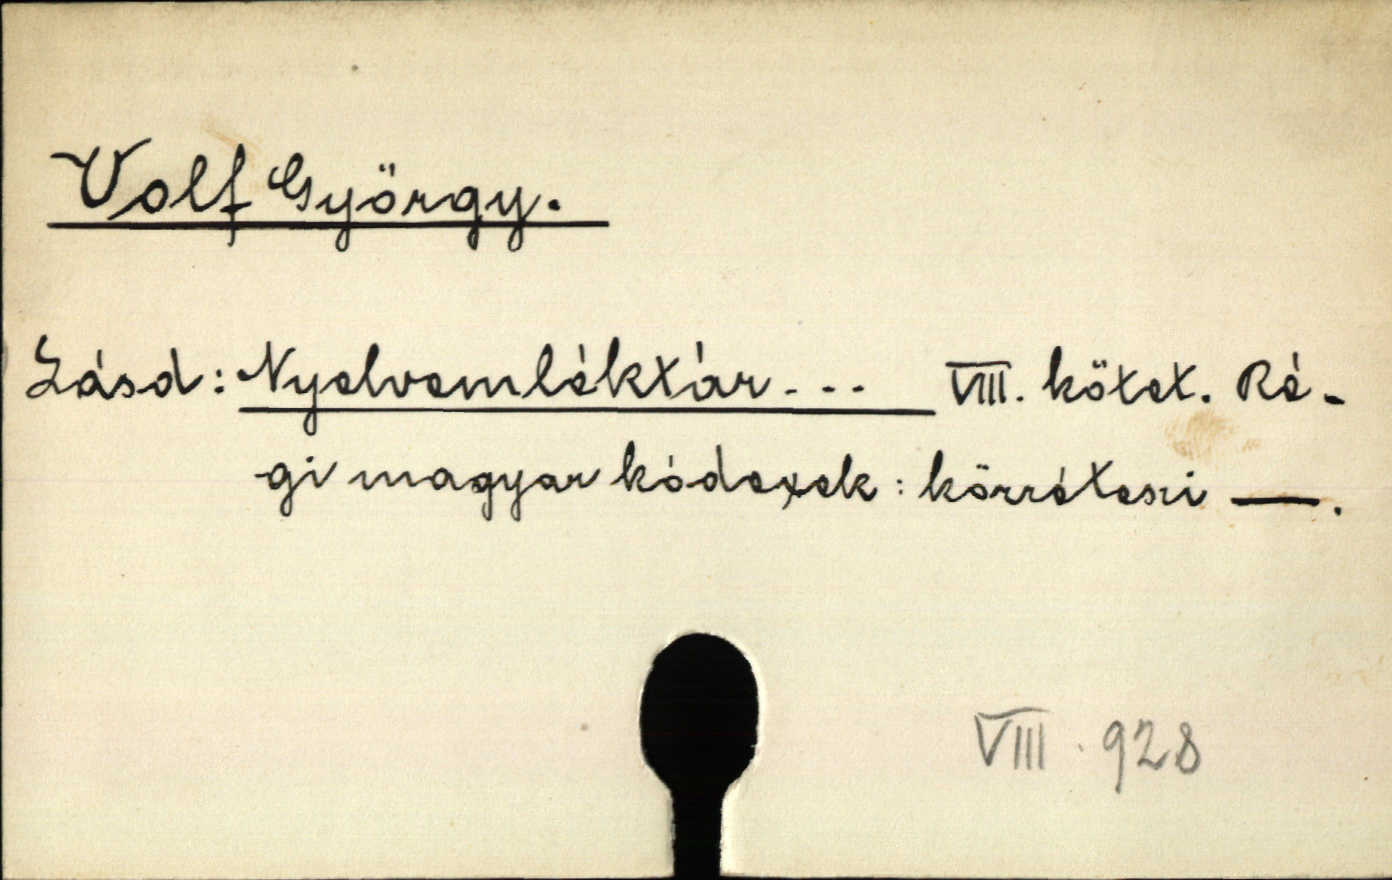 Volf György.
Lásd: Nyelvemléktár... VIII. kötet. Ré-
gi magyar kódexek: közzéteszi —.
VIII. 928